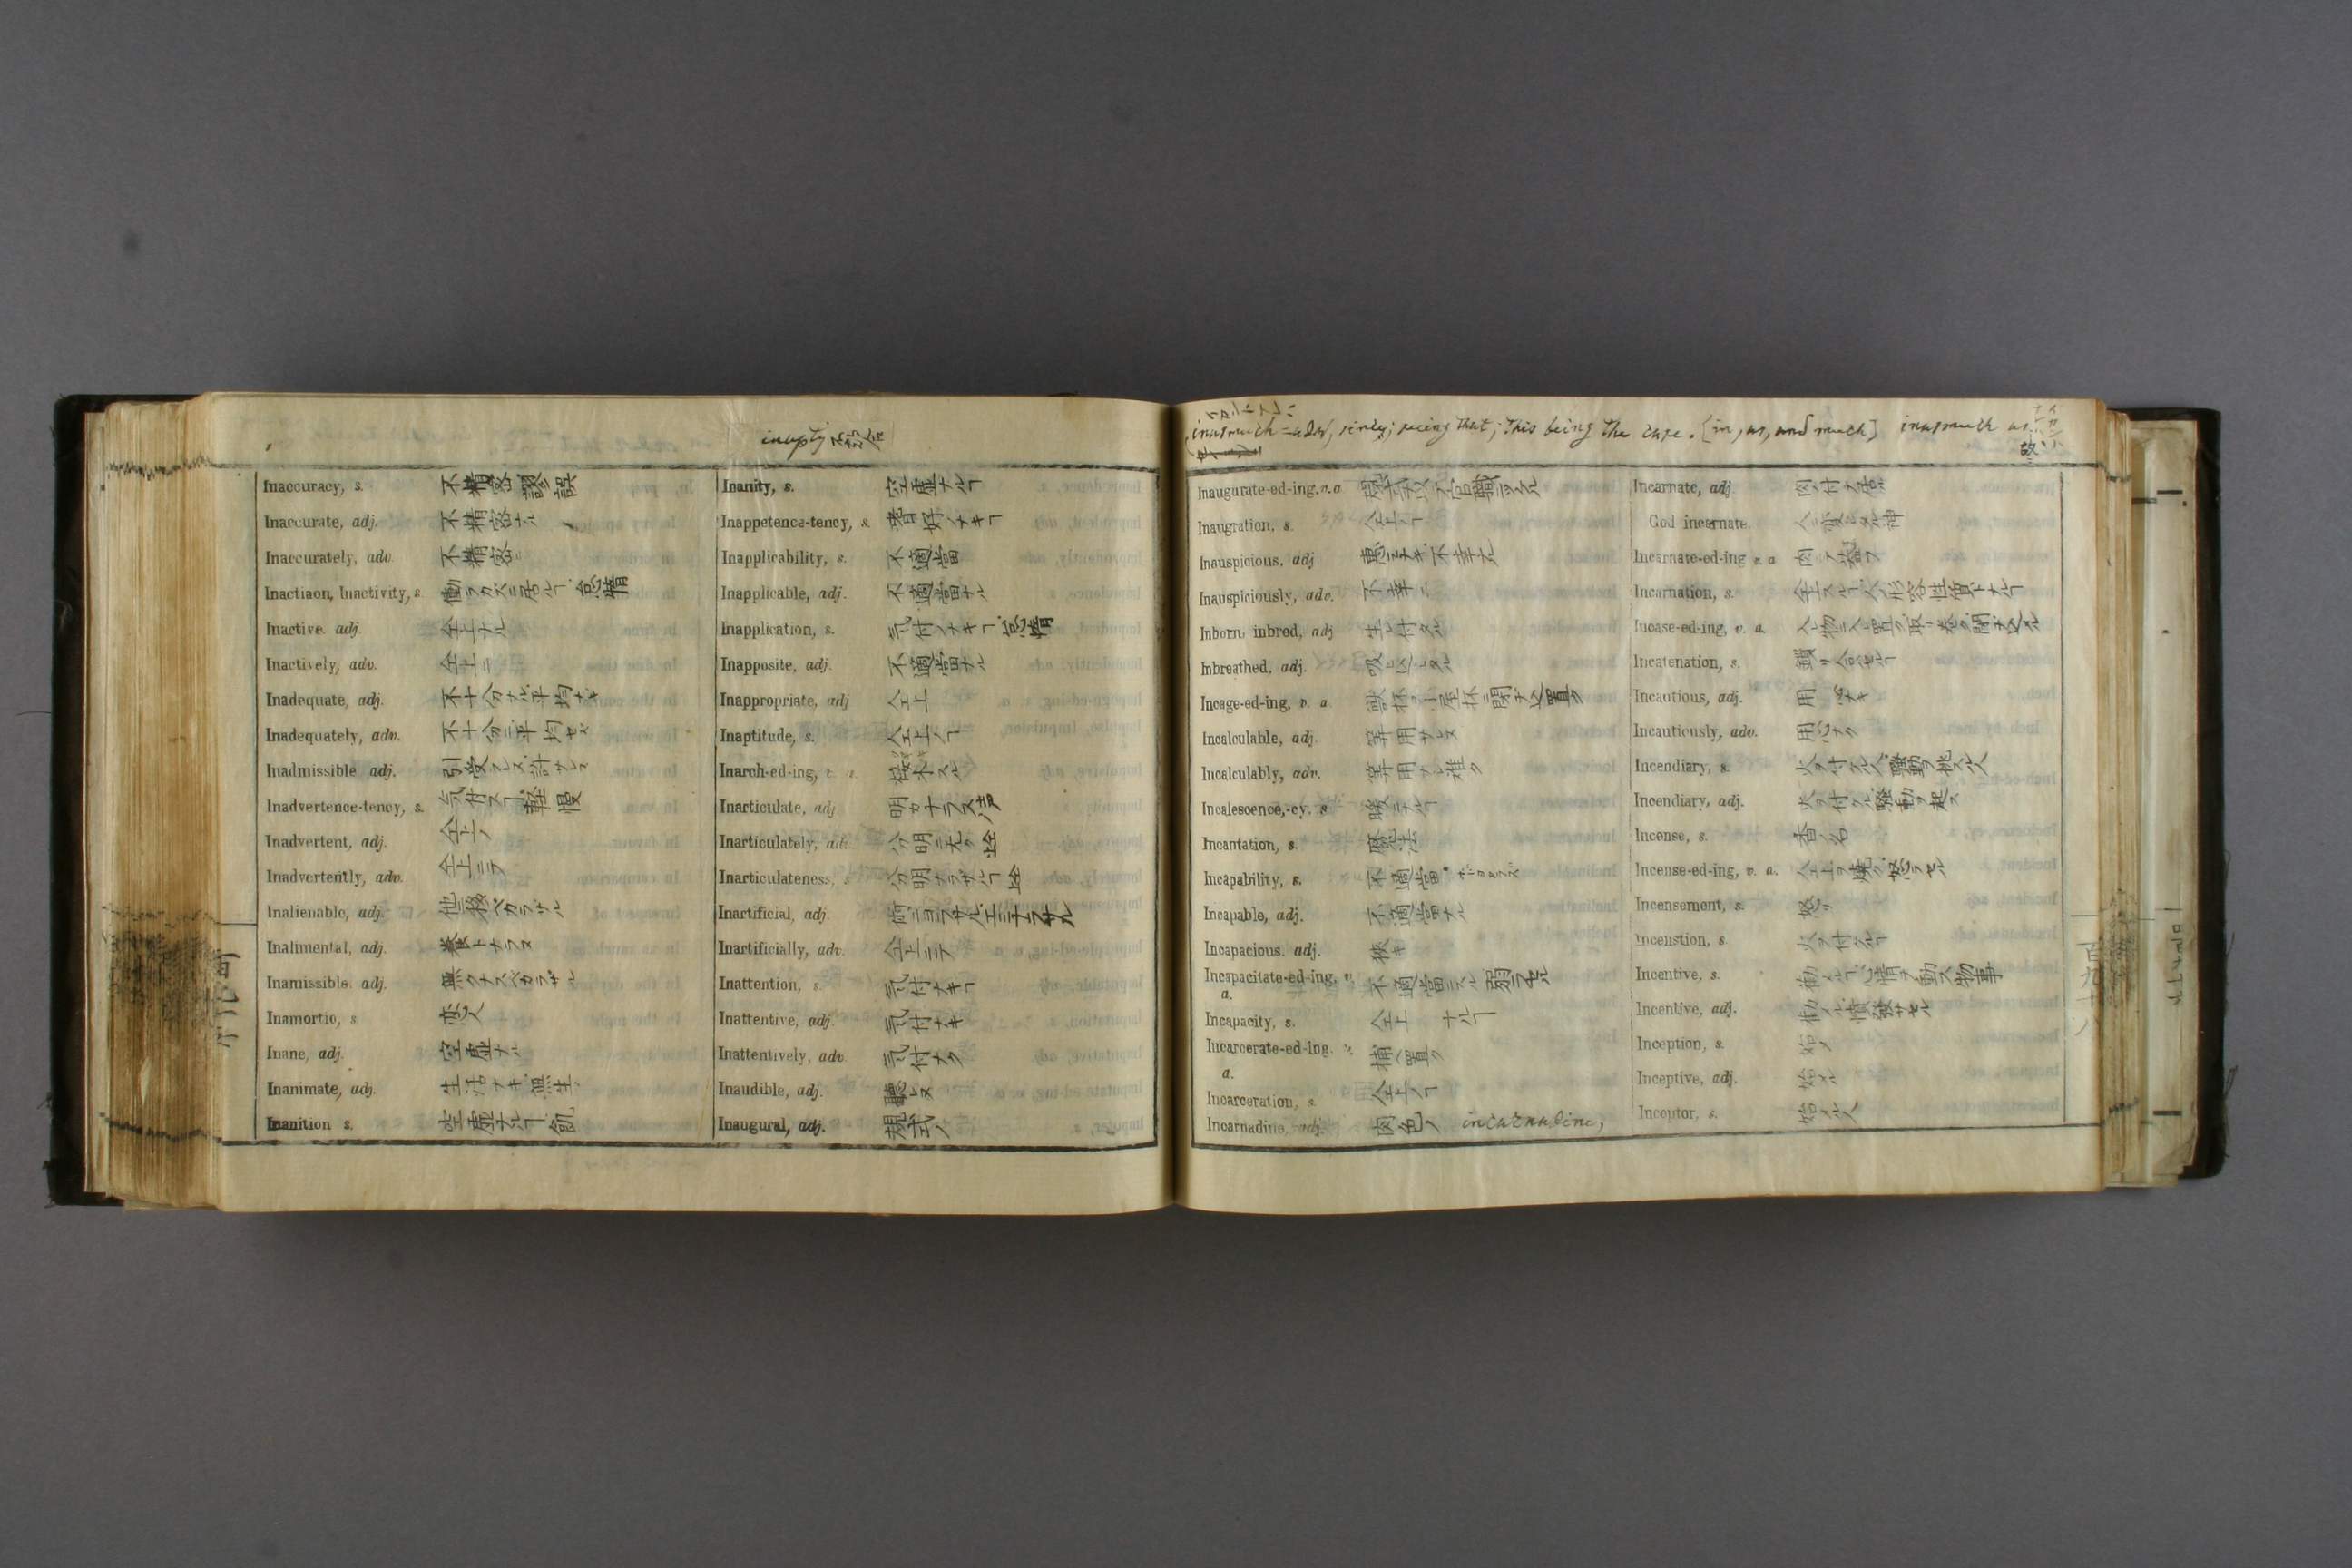 inapty
Inaccuracy, s. 不精密. 謬誤
Inaccurate, adj. 不精密ナル
Inaccurately, adv. 不精密ニ
Inactiaon, Inactivity, s. 働ラカズニ居ルヿ. 怠惰
Inactive. adj. 仝上ナル
Inactively, adv. 仝上ニ
Inadequate, adj. 不十分ナル. 平均ナキ
Inadequately, adv. 不十分ニ. 平均セズ
Inadmissible adj. 引受ラレヌ. 許サレヌ
Inadvertence-tency, s. 気付ヌヿ. 軽慢
Inadvertent, adj. 仝上ノ
Inadvertently, adv. 仝上ニテ
Inalienable, adj. 他ニ移スベカラザル
Inalimental, adj. 養トナラヌ
Inamissible. adj. 無クナスベカラザル
Inamorto, s 恋人
Inane, adj. 空虚ナル
Inanimate, adj. 生活ナキ. 無生ノ
Inanition s. 空虚ナルヿ
Inanity, s. 空虚ナルヿ
Inappetence-tency, s. 嗜好ノナキヿ
Inapplicability, s. 不適當
Inapplicable, adj. 不適當ナル
Inapplication, s. 気付ノナキヿ. 怠惰
Inapposite, adj. 不適當ナル
Inappropriate, adj 仝上
Inaptitude, s. 仝上ノヿ
Inarch-ed-ing, 接木スル
Inarticulate, adj 明カナラヌ声
Inarticulately, ad. 分明ニ無ク
Inarticulateness, 分明ナラザルヿ
Inartificial, adj.
Inartificially, adv. 仝上ニテ
Inattention, s. 気付ナキヿ
Inattentive, adj. 気付ナキ
Inattentively, adv. 気付ナク
Inaudible, adj. 聽レヌ
Inaugural, adj. 規式ノ
inasmuch = adv, sincy; seeing that; This being the case. [in, as, and much] inasmuch as 故ニ
Inaugurate-ed-ing. v. a
Inaugration, s. 仝上ノヿ
Inauspicious. adj 惠ミナキ. 不幸ナル
Inauspiciously, adv. 不幸ニ
Inborn inbred, adj 生レ付タル
Inbreathed. adj. 吸ヒ込ミタル
Incage-ed-ing, v. a
Incalculable, adj. 算用サレヌ
Incalculably, adv. 算用サレ難ク
Incalescence,-cy. s 暖ニナルヿ
Incantation, s. 魔法
Incapability, s. 不適當
Incapable, adj. 不適當ナル
Incapacious. adj. 狭キ
Incapacitate-ed-ing, v. a. 不適當ニスル. 弱ラセル
Incapacity, s. 仝上 ナルヿ
Incarcerate-ed-ing. v. a. 捕ヘ置ク
Incarceration, s. 仝上ノヿ
Incarnadine, adj. 肉色ノ incarnadine,
Incarnate, adj. 肉ノ付テ居ル
God incarnate.
Incarnate-ed-ing v. a
Incarnation, s.
Incase-ed-ing, v. a.
Incatenation, s. 鎖リ合セルヿ
Incautious, adj. 用心ナキ
Incautiously, adv. 用心ナク
Incendiary, s. 火ヲ付ケル人. 騒動ヲ起ス人
Incendiary, adj. 火ヲ付ケル. 騒動ヲ起ス
Incense, s. 香ノ名
Incense-ed-ing, v. a. 仝上ヲ焼ク. 怒ラセル
Incensement, s. 怒リ
Incenstion, s. 火ヲ付ケルヿ
Incentive, s.
Incentive, adj.
Inception, s. 始リ
Inceptive, adj. 始メル
Inceptor, s. 始メル人